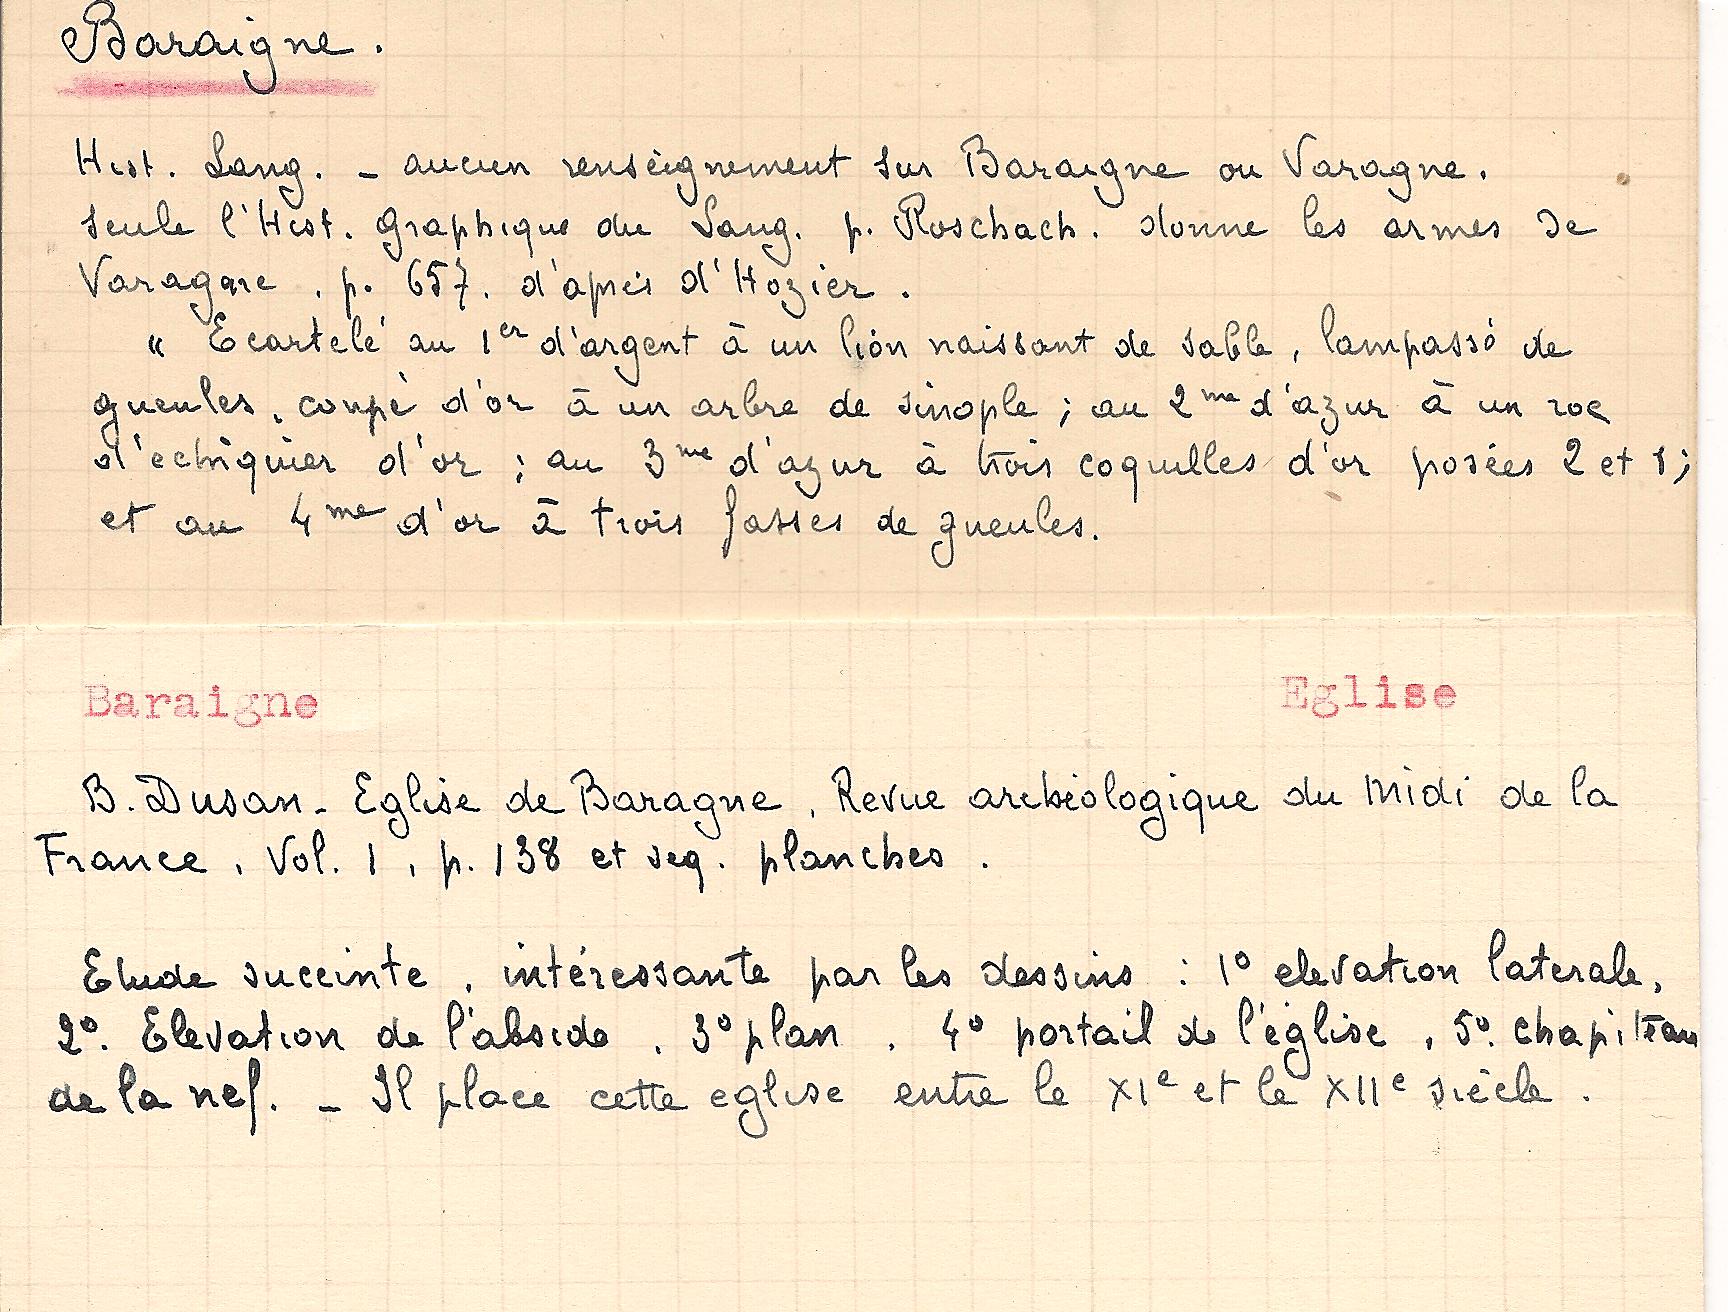 Baraigne.
Hist. Lang. - aucun renseignement sur Baraigne ou Varagne.
seule l'Hist. graphique du Lang. p. Roschach. donne les armes de
Varagne, p. 657. d'après d'Hozier.
" Ecartelé au 1er d'argent à un lion naissant de sable, lampassé de
gueules, coupé d'or à un arbre de sinople ; au 2me d'azur à un roc
d'echiquier d'or ; au 3me d'azur à trois coquilles d'or posées 2 et 1 ;
et au 4me d'or à trois fasses de gueules.
Baraigne Eglise
B. Dusan - Eglise de Baragne, Revue archéologique du Midi de la
France, Vol. 1, p. 138 et seq. planches.
Etude succinte, intéressante par les dessins : 1° elevation laterale,
2°. Elevation de l'abside, 3° plan, 4° portail de l'église, 5°. chapiteau
de la nef. - Il place cette eglise entre le XIe et le XIIe siècle.